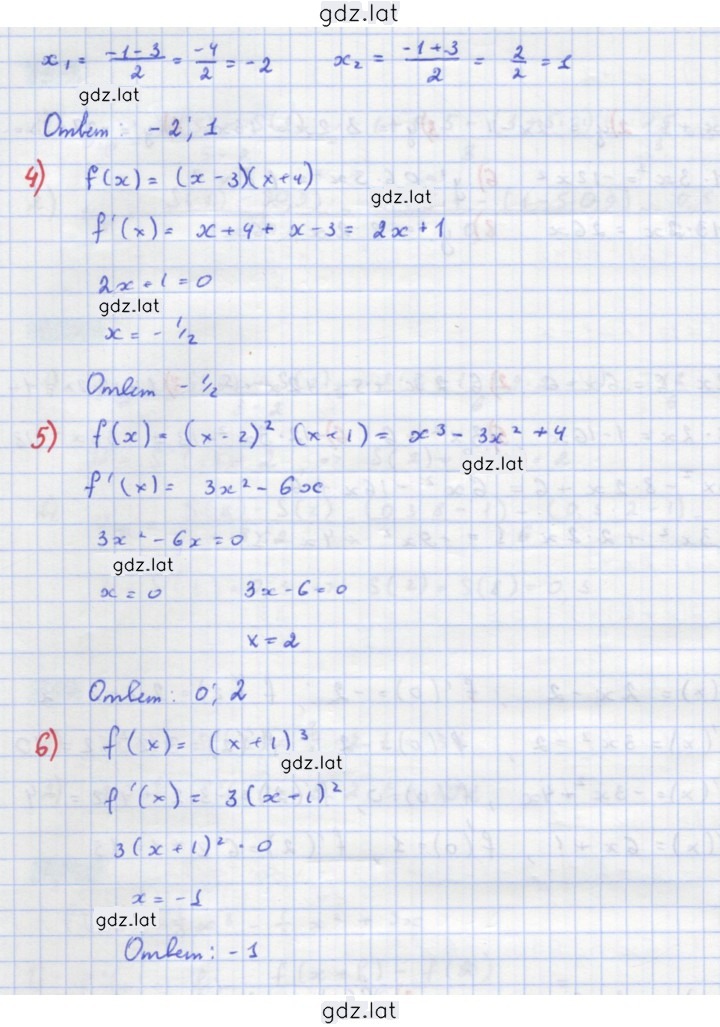 gdz.lat
x₁ = (-1-3)/2 = -4/2 = -2 x₂ = (-1+3)/2 = 2/2 = 1
gdz.lat
Ответ: -2; 1
4) f(x) = (x-3)(x+4)
gdz.lat
f'(x) = x+4+x-3 = 2x+1
2x+1=0
gdz.lat
x = -1/2
Ответ -1/2
5) f(x) = (x-2)² (x+1) = x³-3x²+4
gdz.lat
f'(x) = 3x²-6x
3x²-6x=0
gdz.lat
x=0 3x-6=0
x=2
Ответ: 0; 2
6) f(x) = (x+1)³
gdz.lat
f'(x) = 3(x+1)²
3(x+1)² · 0
x=-1
gdz.lat
Ответ: -1
gdz.lat